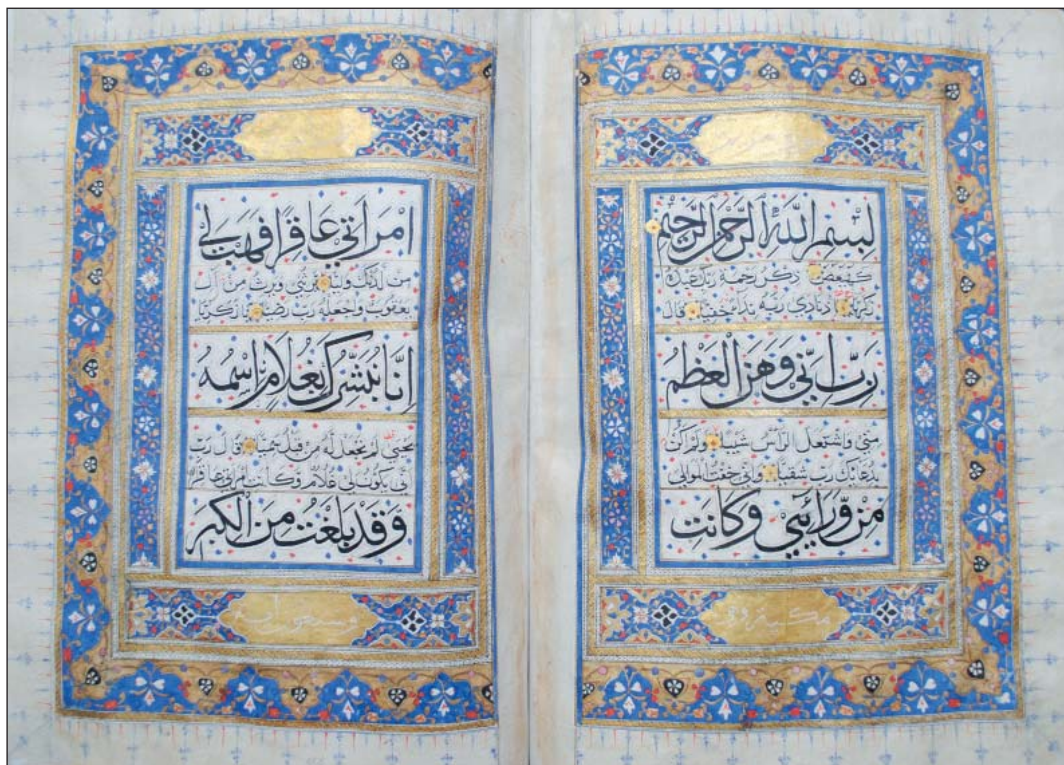 بسم الله الرحمن الرحيم
كهيعص ذكر رحمة ربك عبده
زكريا اذ نادى ربه نداء خفيا قال
رب اني وهن العظم
مني واشتعل الراس شيبا ولم اكن
بدعائك رب شقيا واني خفت الموالي
من ورائي وكانت
مكية وهي
امراتي عاقرا فهب لي
من لدنك وليا يرثني ويرث من آل
يعقوب واجعله رب رضيا يا زكريا
انا نبشرك بغلام اسمه
يحيى لم نجعل له من قبل سميا قال رب
انى يكون لي غلام وكانت امراتي عاقرا
وقد بلغت من الكبر